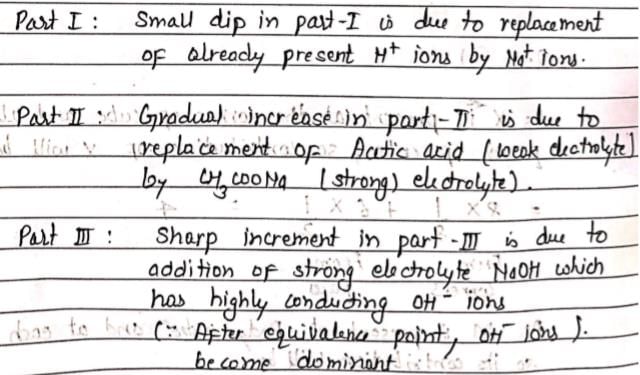 Part I : Small dip in part-I is due to replacement
of already present H+ ions by Na+ ions.
Part II : Gradual increase in part-II is due to
replacement of Acetic acid (weak electrolyte)
by CH3COONa (strong) electrolyte).
Part III : Sharp increment in part-III is due to
addition of strong electrolyte NaOH which
has highly conducting OH- ions
(∵ After equivalence point, OH- ions ).
become dominant